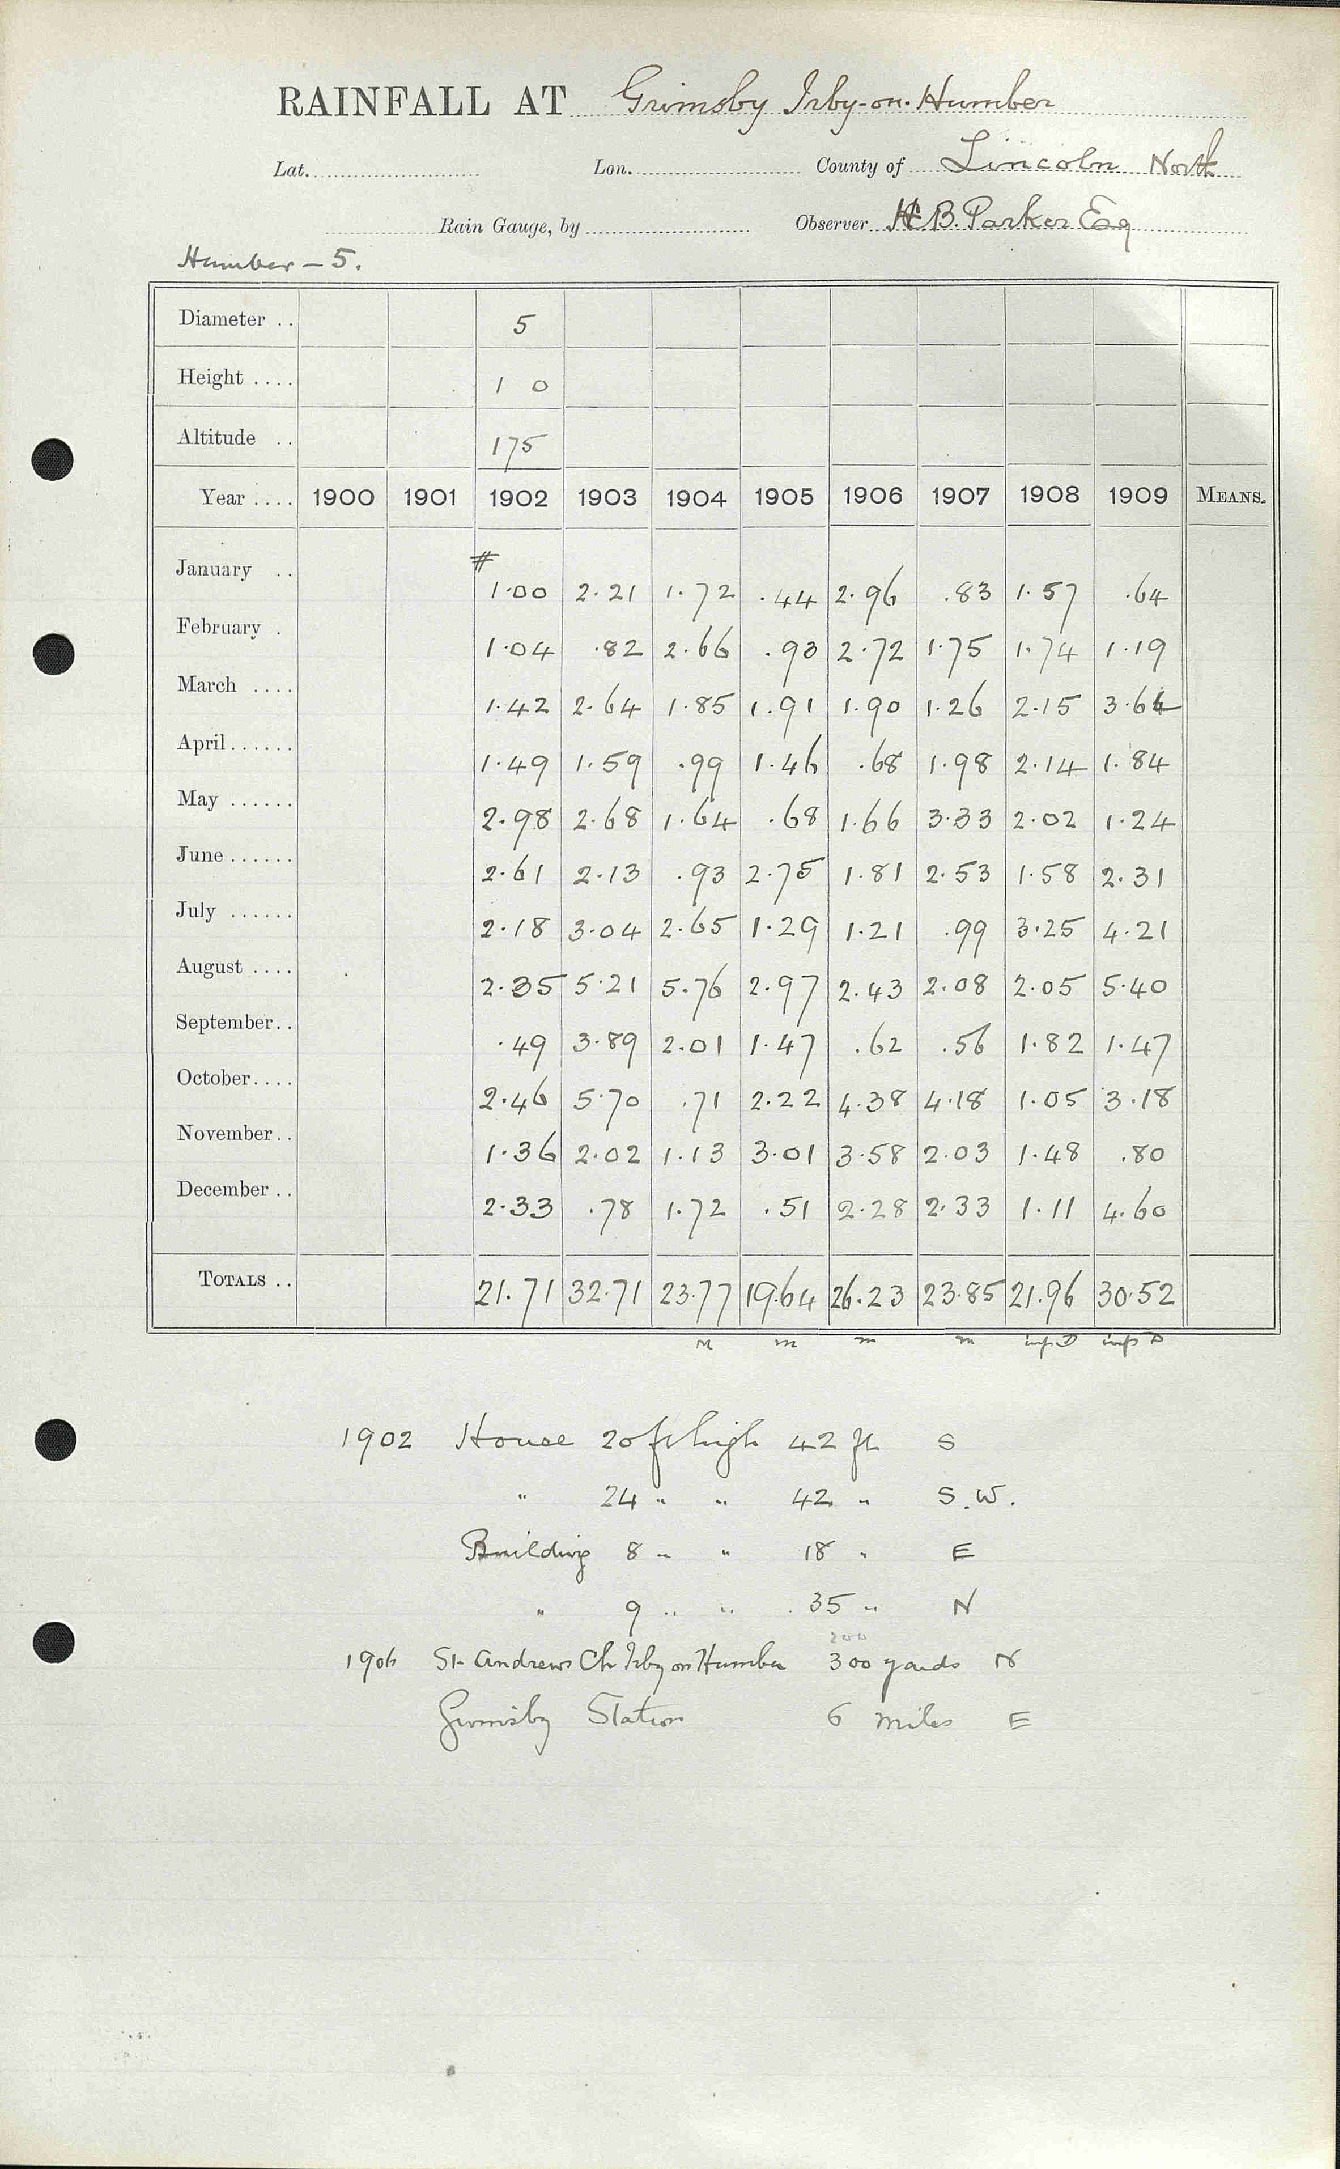 RAINFALL AT Grimsby Irby-on-Humber
Lat. Lon. County of Lincoln North
Rain Gauge, by Observer H.B. Parker Esq
Humber – 5.
Diameter .. 5
Height .... 1 0
Altitude .. 175
Year .... 1900 1901 1902 1903 1904 1905 1906 1907 1908 1909 MEANS.
#
January .. 1.00 2.21 1.72 .44 2.96 .83 1.57 .64
February . 1.04 .82 2.66 .93 2.72 1.75 1.74 1.19
March .... 1.42 2.64 1.85 1.91 1.90 1.26 2.15 3.64
April...... 1.49 1.59 .99 1.46 .68 1.98 2.14 1.84
May ...... 2.98 2.68 1.64 .68 1.66 3.33 2.02 1.24
June...... 2.61 2.13 .93 2.75 1.81 2.53 1.58 2.31
July ...... 2.18 3.04 2.65 1.29 1.21 .99 3.25 4.21
August .... 2.35 5.21 5.76 2.97 2.43 2.08 2.05 5.40
September.. .49 3.89 2.01 1.47 .62 .56 1.82 1.47
October.... 2.46 5.70 .71 2.22 4.38 4.18 1.05 3.18
November.. 1.36 2.02 1.13 3.01 3.58 2.03 1.48 .80
December .. 2.33 .78 1.72 .51 2.28 2.33 1.11 4.60
TOTALS .. 21.71 32.71 23.77 19.64 26.23 23.85 21.96 30.52
M m m m inf D inf D
1902 House 20 ft high 42 ft S
" 24 " " 42 " S.W.
Building 8 " " 18 " E
" 9 " " 35 " N
200
1906 St Andrews Ch Irby on Humber 300 yards N
Grimsby Station 6 miles E